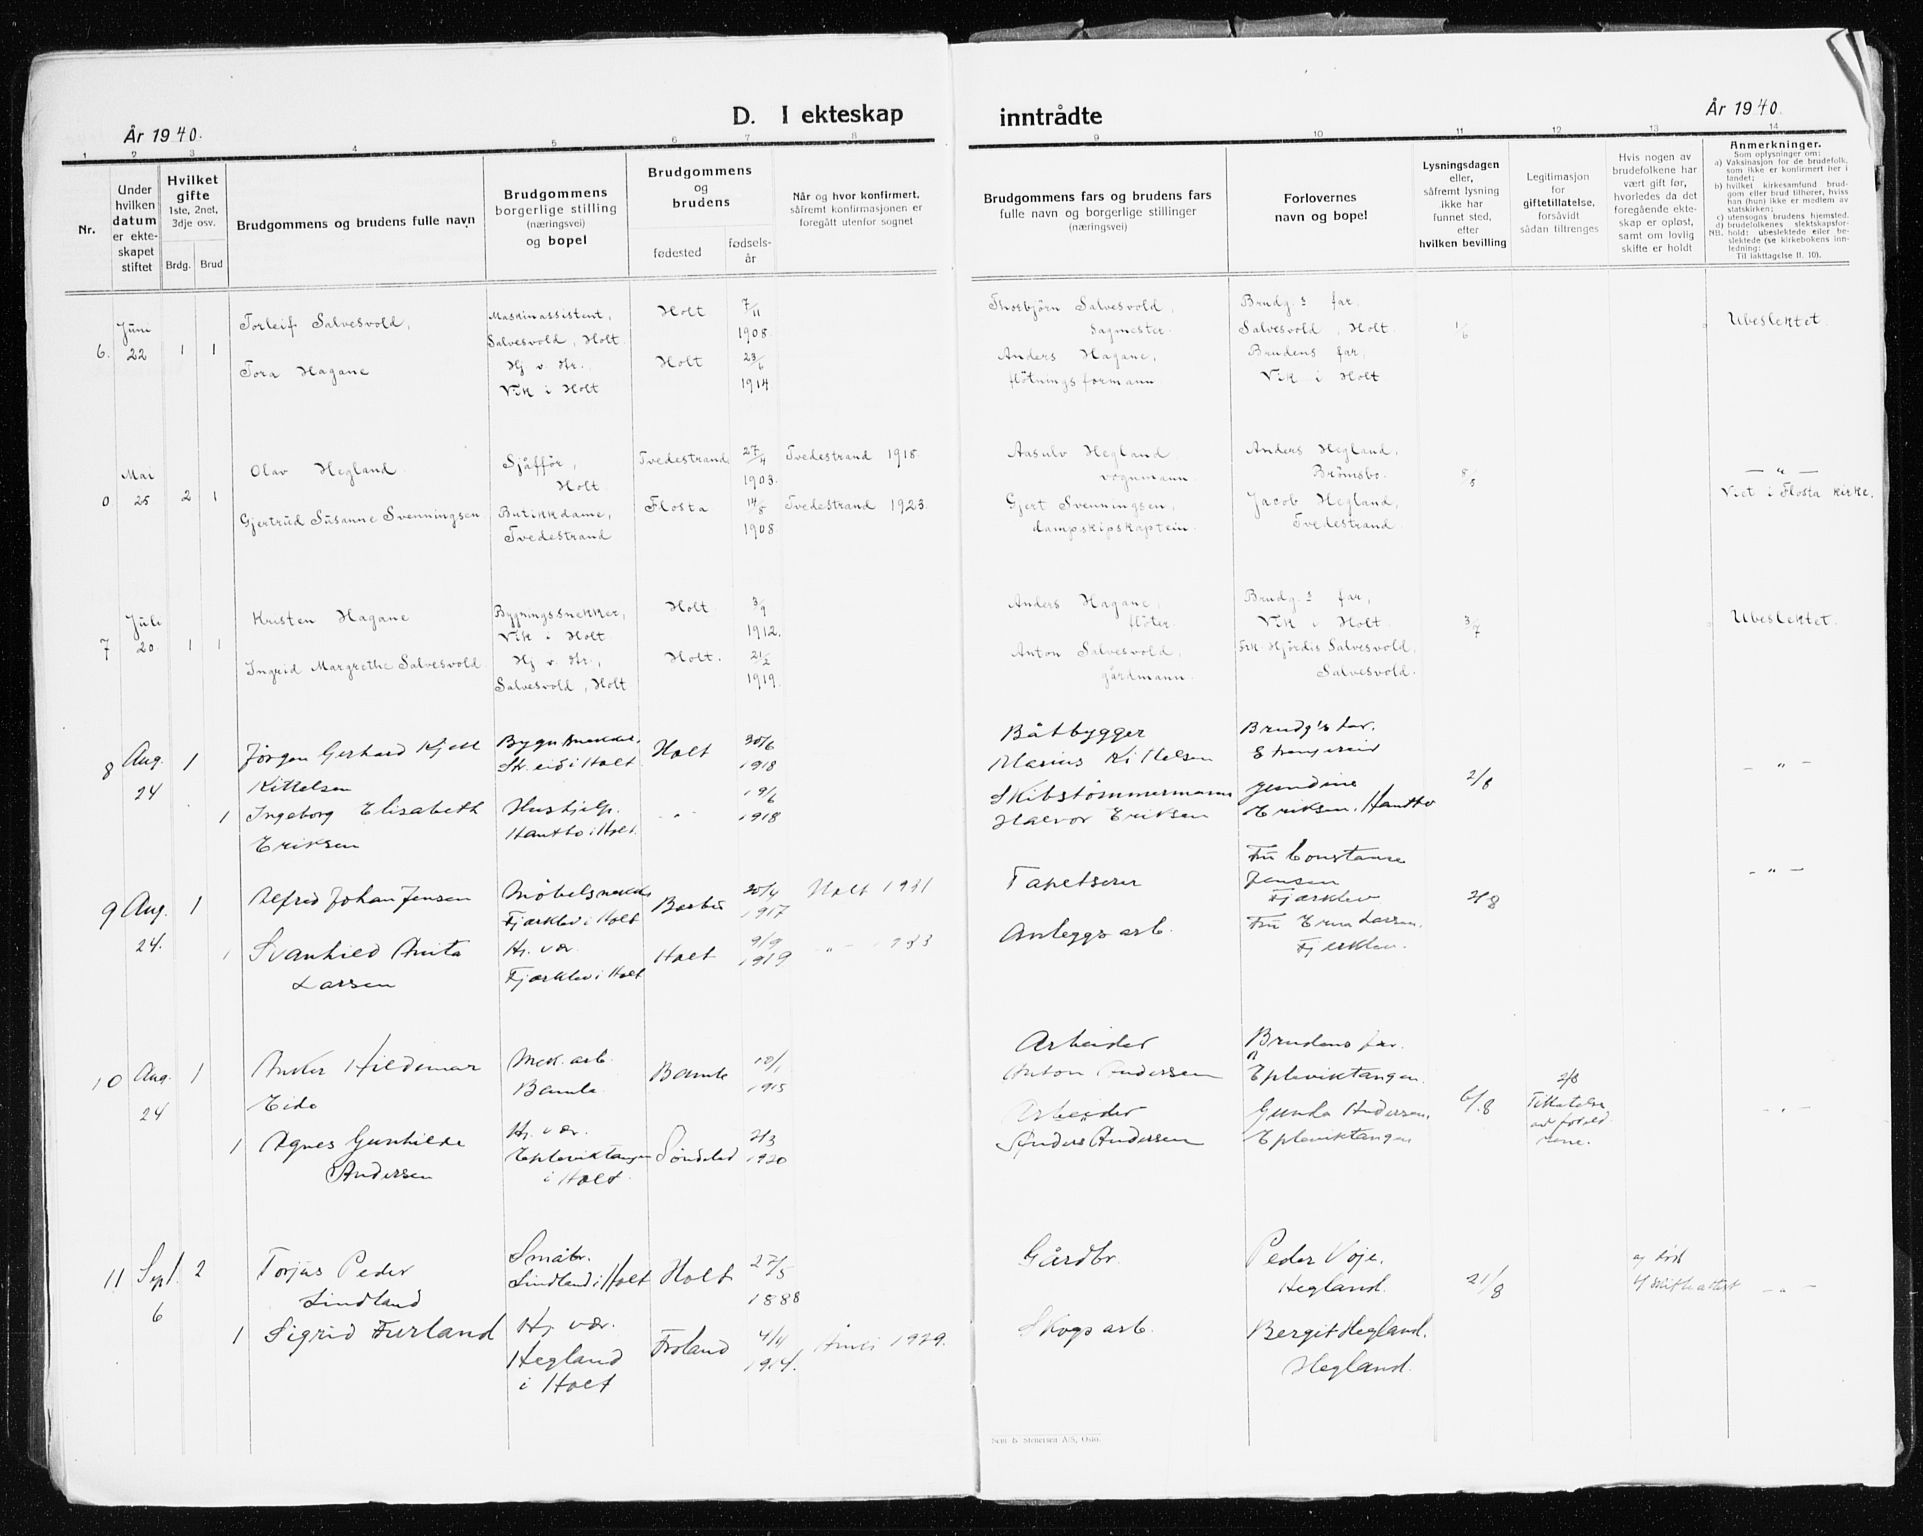 År 1940.
D. I ekteskap
inntrådte
År 1940.
1 2 3 4 5 6 7 8 9 10 11 12 13 14
Nr.
Under
hvilken
datum
er ekte-
skapet
stiftet
Hvilket
gifte
1ste, 2net,
3dje osv.
Brdg. Brud
Brudgommens og brudens fulle navn
Brudgommens
borgerlige stilling
(næringsvei)
og bopel
Brudgommens
og
brudens
fødested
fødsels-
år
Når og hvor konfirmert,
såfremt konfirmasjonen er
foregått utenfor sognet
Brudgommens fars og brudens fars
fulle navn og borgerlige stillinger
(næringsvei)
Forlovernes
navn og bopel
Lysningsdagen
eller,
såfremt lysning
ikke har
funnet sted,
efter
hvilken bevilling
Legitimasjon
for
giftetillatelse,
forsåvidt
sådan tiltrenges
Hvis nogen av
brudefolkene har
vært gift før,
hvorledes da det
foregående ekte-
skap er opløst,
samt om lovlig
skifte er holdt
Anmerkninger.
Som oplysninger om:
a) Vaksinasjon for de brudefolk,
som ikke er konfirmert her i
landet;
b) hvilket kirkesamfund brud-
gom eller brud tilhører, hviss
han (hun) ikke er medlem av
statskirken;
c) utensogns brudens hjemsted.
d) brudefolkenes slektskapsfor-
NB. hold: ubeslektede eller be-
slektede (se kirkebokens inn-
ledning:
Til iakttagelse II. 10).
6. Juni 22 1 1
Torleif Salvesvold,
Maskinassistent,
Salvesvold, Holt
Holt 7/11 1908.
Thorbjörn Salvesvold,
sagmester.
Brudg.s far,
Salvesvold, Holt.
1/6
Ubeslektet.
Tora Hagane
Hj v. Hr.,
Vik i Holt
Holt 23/6 1914
Anders Hagane,
flötningsformann.
Brudens far,
Vik i Holt
0 Mai 25 2 1
Olav Hegland.
Sjåfför,
Holt.
Tvedestrand 27/4 1903.
Tvedestrand 1918.
Aasulv Hegland
vognmann.
Anders Hegland,
Brömsbo.
8/5
— " —
Viet i Flosta kirke.
Gjertrud Susanne Svenningsen
Butikkdame,
Tvedestrand.
Flosta. 14/5 1908
Tvedestrand 1923.
Gjert Svenningsen,
dampskipskaptein.
Jacob Hegland,
Tvedestrand.
7 Juli 20. 1 1
Kristen Hagane
Bygningssnekker,
Vik i Holt
Holt. 3/9 1912.
Anders Hagane,
flöter.
Brudg.s far,
Vik i Holt.
3/7
Ubeslektet.
Ingrid Margrethe Salvesvold.
Hj v. Hr.,
Salvesvold, Holt
Holt. 21/2 1919.
Anton Salvesvold,
gårdmann.
Frk. Hjördis Salvesvold,
Salvesvold.
8 Aug. 24 1
Jørgen Gerhard Kjell
Kittelsen
Holt 30/6 1918
Båtbygger
Marius Kittelsen
Brudg's far.
2/8
- " -
1 Ingeborg Elisabeth
Eriksen
Hushjelp.
Hantho i Holt.
- " - 19/6 1918
Skibstømmermann
Halvor Eriksen
Eriksen, Hantho
9 Aug. 24. 1
Alfred Johan Jensen
Møbelsnekk
Fjærklev i Holt
Barbu 20/4 1917
Holt 1931
Tapetserer
Fru Constanse
Jensen
Fjærklev
2/8
- " -
1 Svanhild Anita
Larsen
Hj. vær.
Fjærklev i Holt
Holt 9/9 1919
- " - 1933
Anleggsarb.
Fru Erna Larsen,
Fjærklev.
10 Aug. 24 1
Anker Hildemar
Eide
Mek. arb.
Bamle
Bamle 10/1 1915
Arbeider
Anton Andersen
Brudens far.
Epleviktangen.
6/8
2/8
Tillatelse
av foreld
rene.
- " -
1 Agnes Gunhilde
Andersen
Hj. vær.
Epleviktangen
i Holt.
Søndeled 21/3 1920
Arbeider
Anders Andersen
Gunda Andersen,
Epleviktangen
11 Sept. 6 2
Torjus Peder
Lindland
Småbr.
Lindland i Holt
Holt 27/5 1888
Gårdbr.
Peder Voje.
Hegland.
21/8
a) død
b) skifteattest
- " -
1 Sigrid Furland
Hj. vær.
Hegland
i Holt
Froland 4/4 1914.
Åmli 1929.
Skogsarb.
Bergit Hegland.
Hegland.
Sem & Stenersen A/S, Oslo.